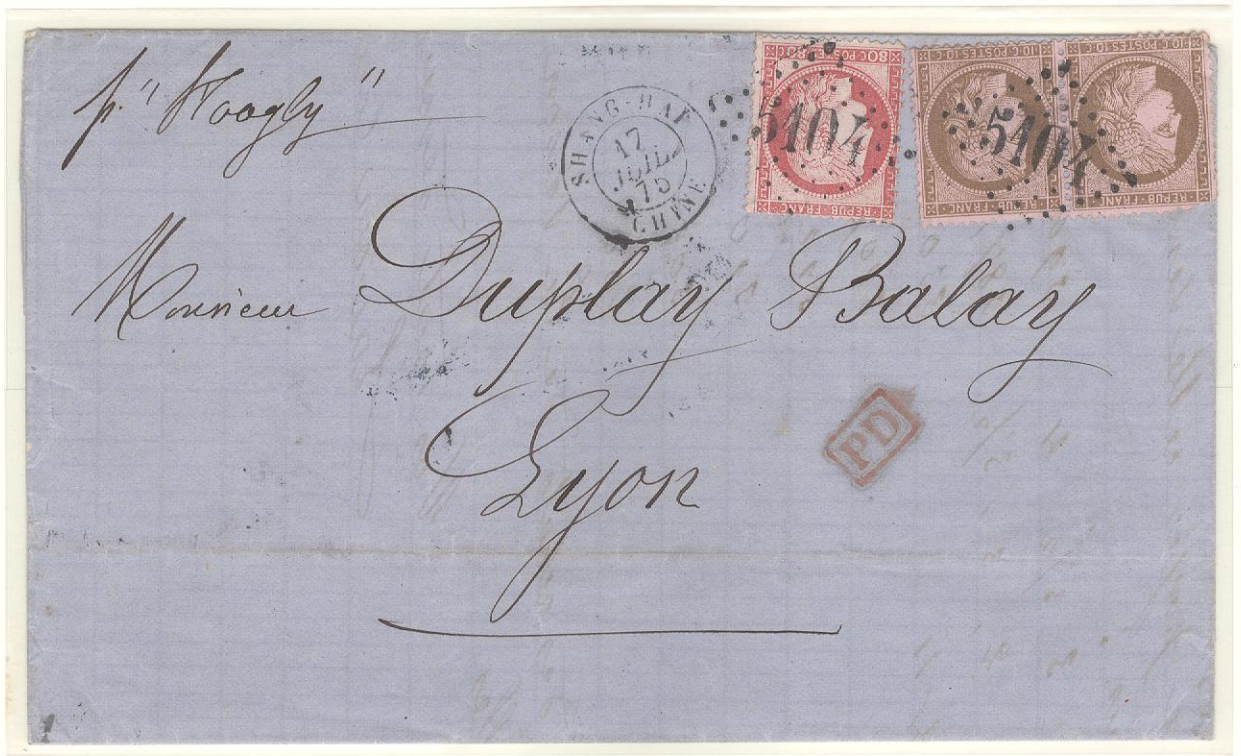 p. "Hoogly"
SHANG-HAI
17
JUIL.
75
CHINE
80C POSTES 80C
REPUB FRANC
5104
10C POSTES 10C
REPUB FRANC
10C POSTES 10C
REPUB FRANC
5104
Monsieur Duplay Balay
PD
Lyon